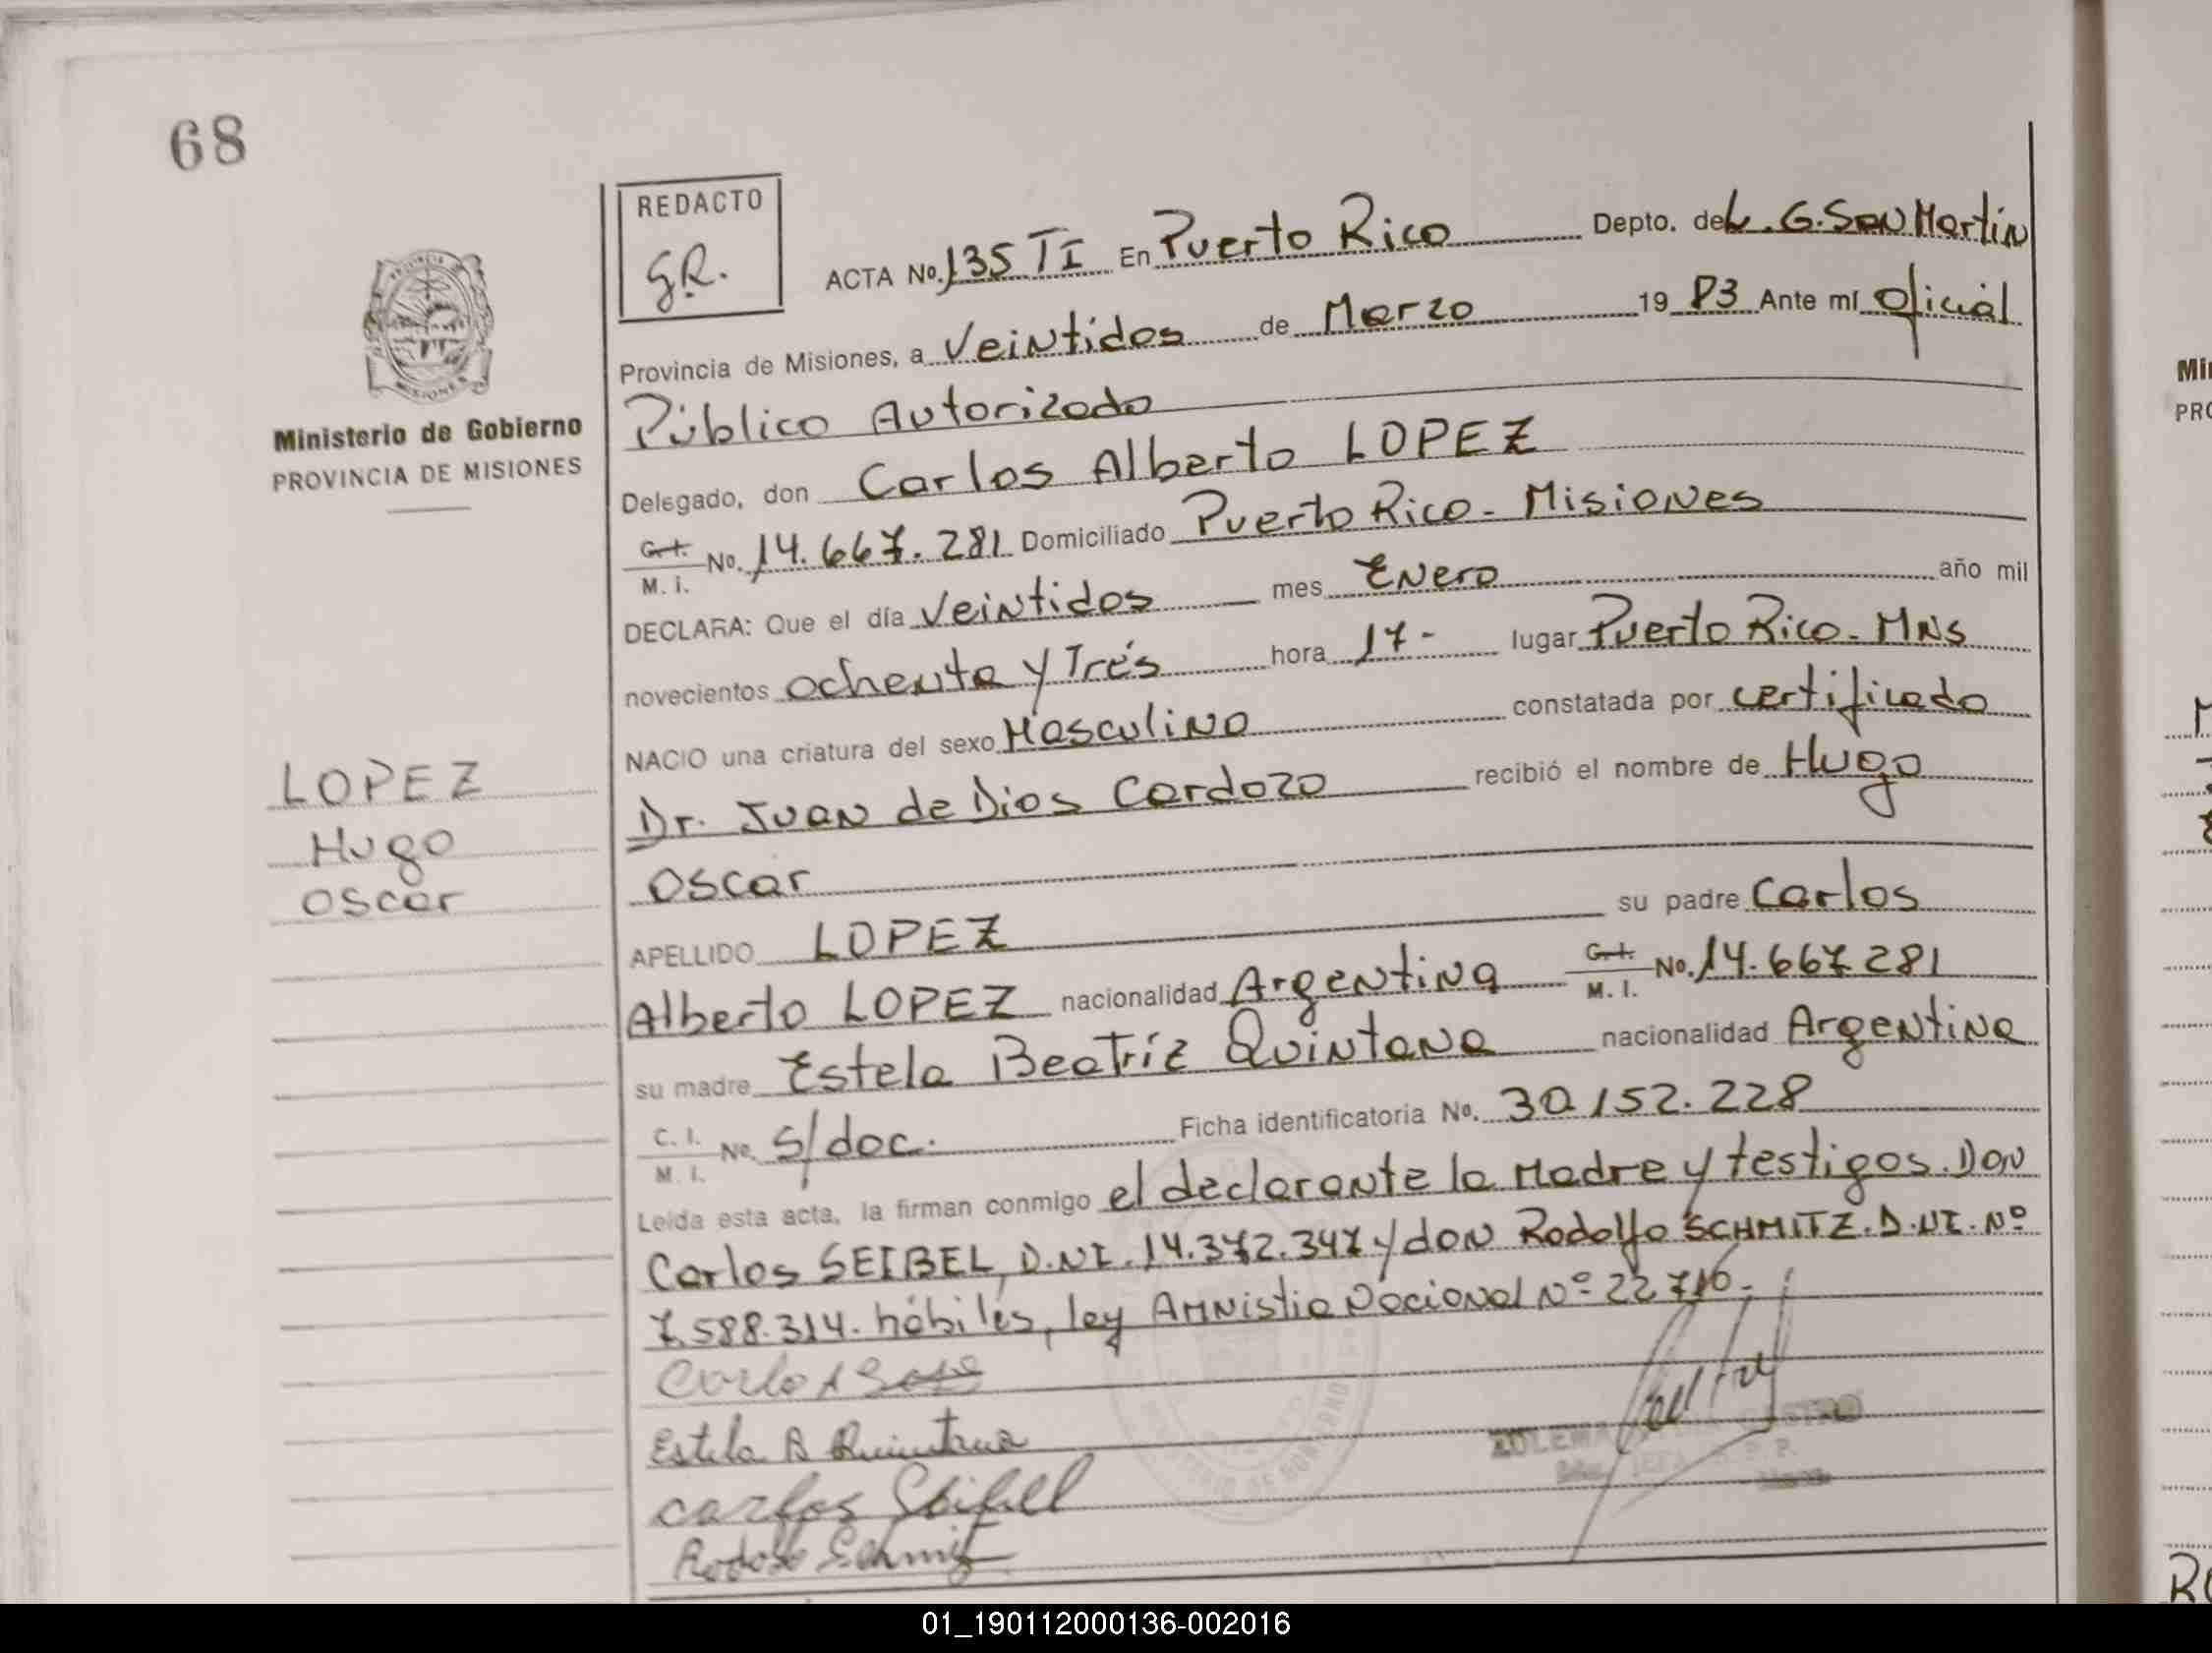 68
REDACTO
G.R.
ACTA No. 135 TI En Puerto Rico Depto. de L. G. San Martin
Provincia de Misiones, a Veintidos de Marzo 19 83 Ante mí Oficial
Público Autorizado
Delegado, don Carlos Alberto LOPEZ
C.I. M. I. No. 14.667.281 Domiciliado Puerto Rico - Misiones
DECLARA: Que el día Veintidos mes Enero año mil
novecientos ochenta y Trés hora 17- lugar Puerto Rico - MNS
NACIO una criatura del sexo Masculino constatada por certificado
Dr. Juan de Dios Cardozo recibió el nombre de Hugo
Oscar
APELLIDO LOPEZ su padre Carlos
Alberto LOPEZ nacionalidad Argentina C.I. M. I. No. 14.667.281
su madre Estela Beatríz Quintana nacionalidad Argentina
C. I. M. I. No. S/doc. Ficha identificatoria No. 30.152.228
Leída esta acta, la firman conmigo el declarante la Madre y testigos. Don
Carlos SEIBEL, D.NI. 14.372.347 y don Rodolfo SCHMITZ. D.NI. Nº
7.588.314. hábiles, ley Amnistia Nacional Nº 22.716.-
Carlos A
Estela B Quintana
Carlos Seibel
Rodolfo Schmitz
MINISTERIO DE GOBIERNO
ZULEMA CASTRO
Ministerio de Gobierno
PROVINCIA DE MISIONES
LOPEZ
Hugo
Oscar
PRO
01_190112000136-002016